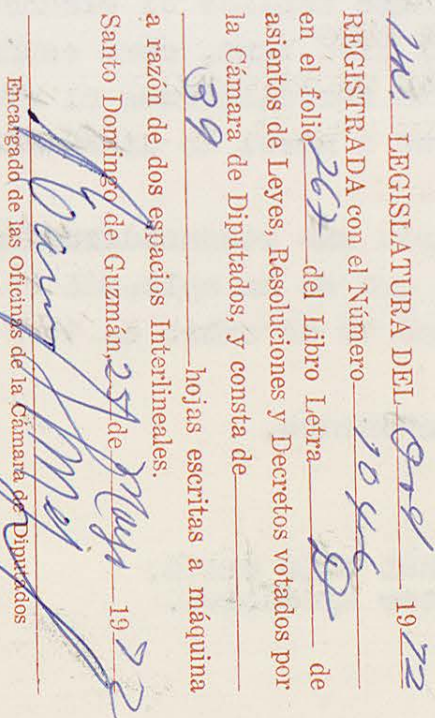 1ra. LEGISLATURA DEL Ord 1972
REGISTRADA con el Número 1046
en el folio 267 del Libro Letra D de
asientos de Leyes, Resoluciones y Decretos votados por
la Cámara de Diputados, y consta de
39 hojas escritas a máquina
a razón de dos espacios Interlineales.
Santo Domingo de Guzmán, 25 de Mayo 1972
Encargado de las Oficinas de la Cámara de Diputados